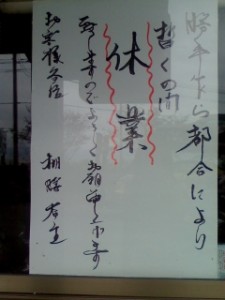 勝手乍ら都合により
暫くの間
休業
致しますのでよろしくお願申し上げます
お客様各位